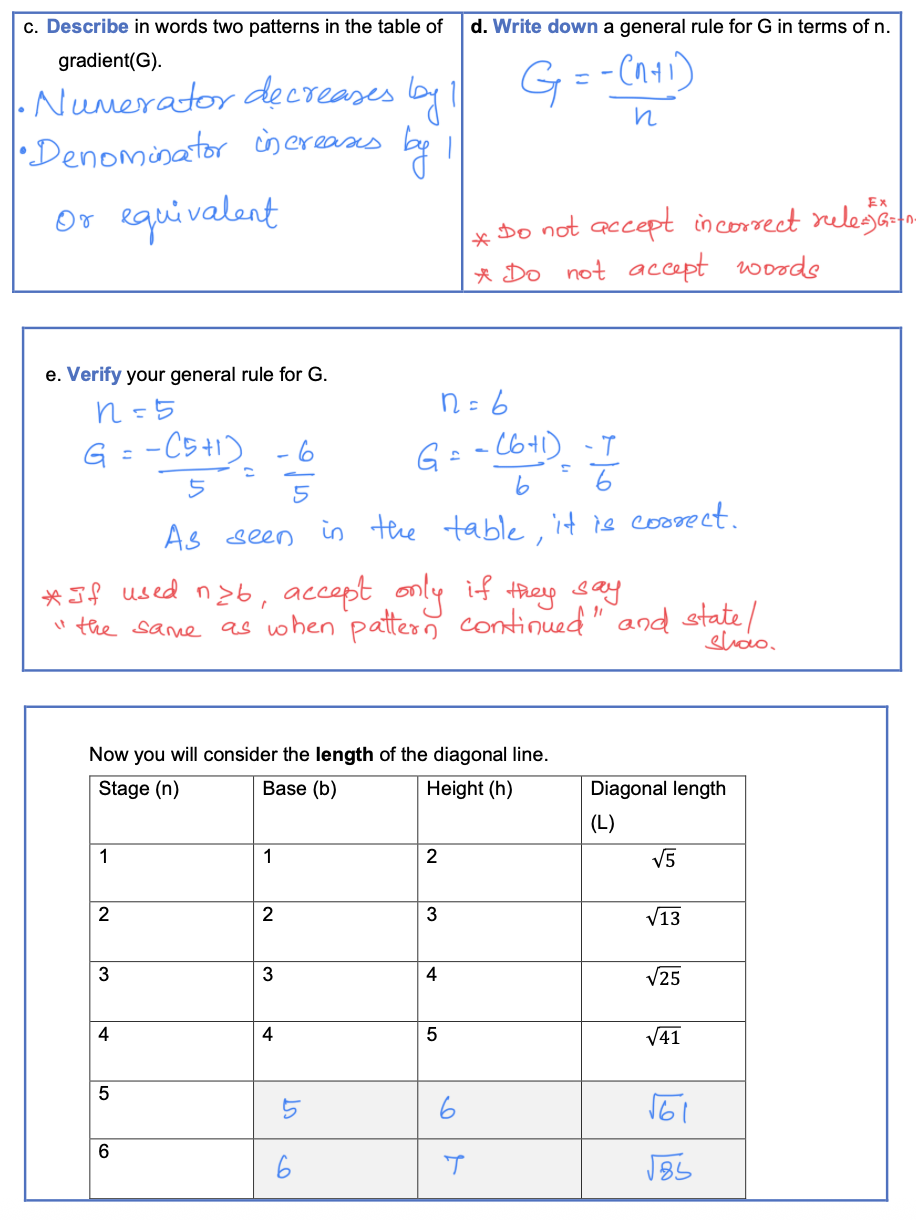 c. Describe in words two patterns in the table of
gradient(G).
• Numerator decreases by 1
• Denominator increases by 1
or equivalent
d. Write down a general rule for G in terms of n.
G = -(n+1)
n
Ex
* Do not accept incorrect rule⇒G=-n
* Do not accept words
e. Verify your general rule for G.
n = 5
G = -(5+1) = -6
5 5
n = 6
G = -(6+1) = -7
6 6
As seen in the table, it is correct.
* If used n≥6, accept only if they say
"the same as when pattern continued" and state/
show.
Now you will consider the length of the diagonal line.
Stage (n) Base (b) Height (h) Diagonal length
(L)
1 1 2 √5
2 2 3 √13
3 3 4 √25
4 4 5 √41
5 5 6 √61
6 6 7 √85